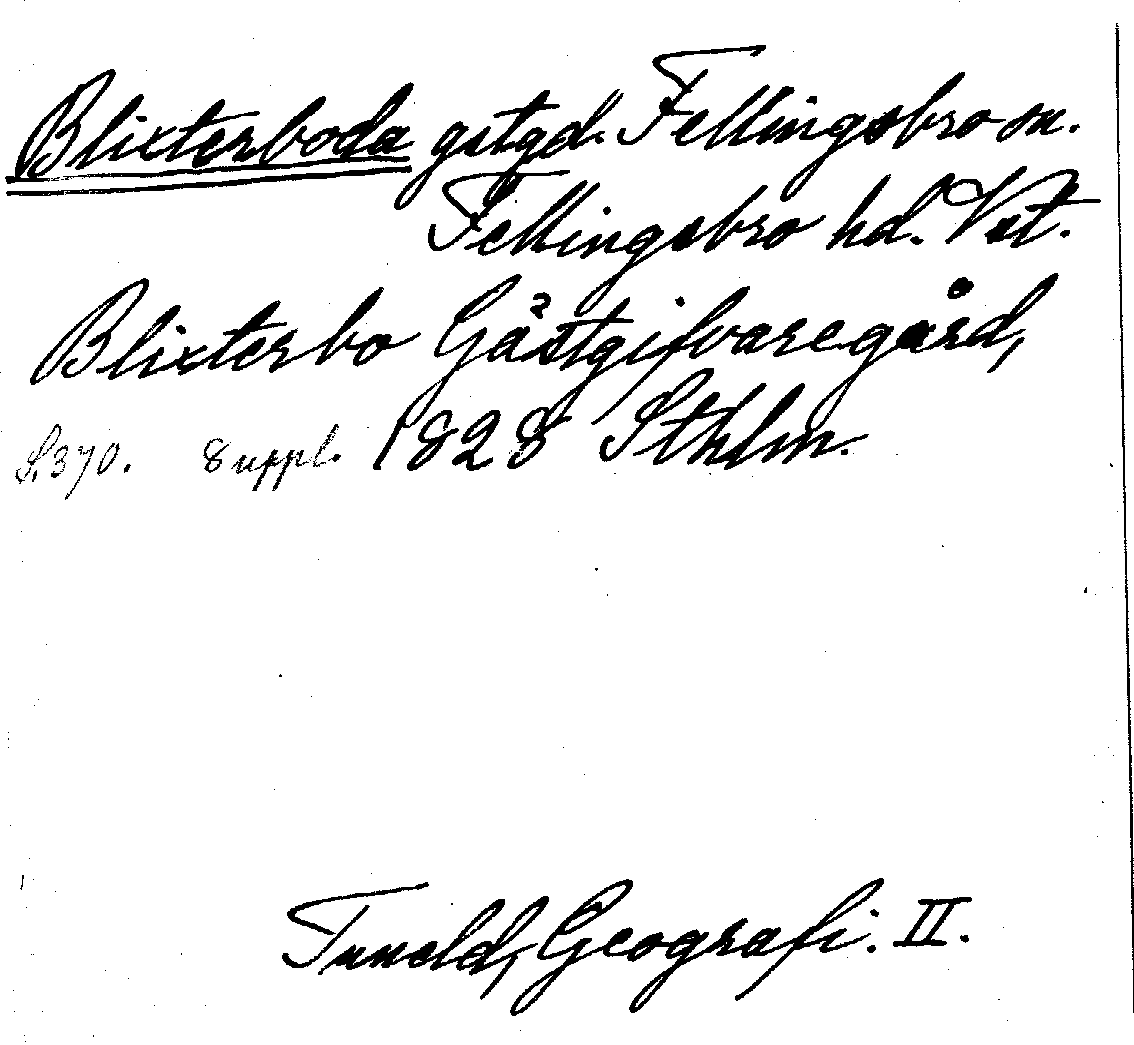 Blixterboda gstgd. Fellingsbro sn.
Fellingsbro hd. Vst.
Blixterbo Gästgifvaregård,
S. 370. Suppl. 1828 Sthlm.
Tuneld, Geografi. II.